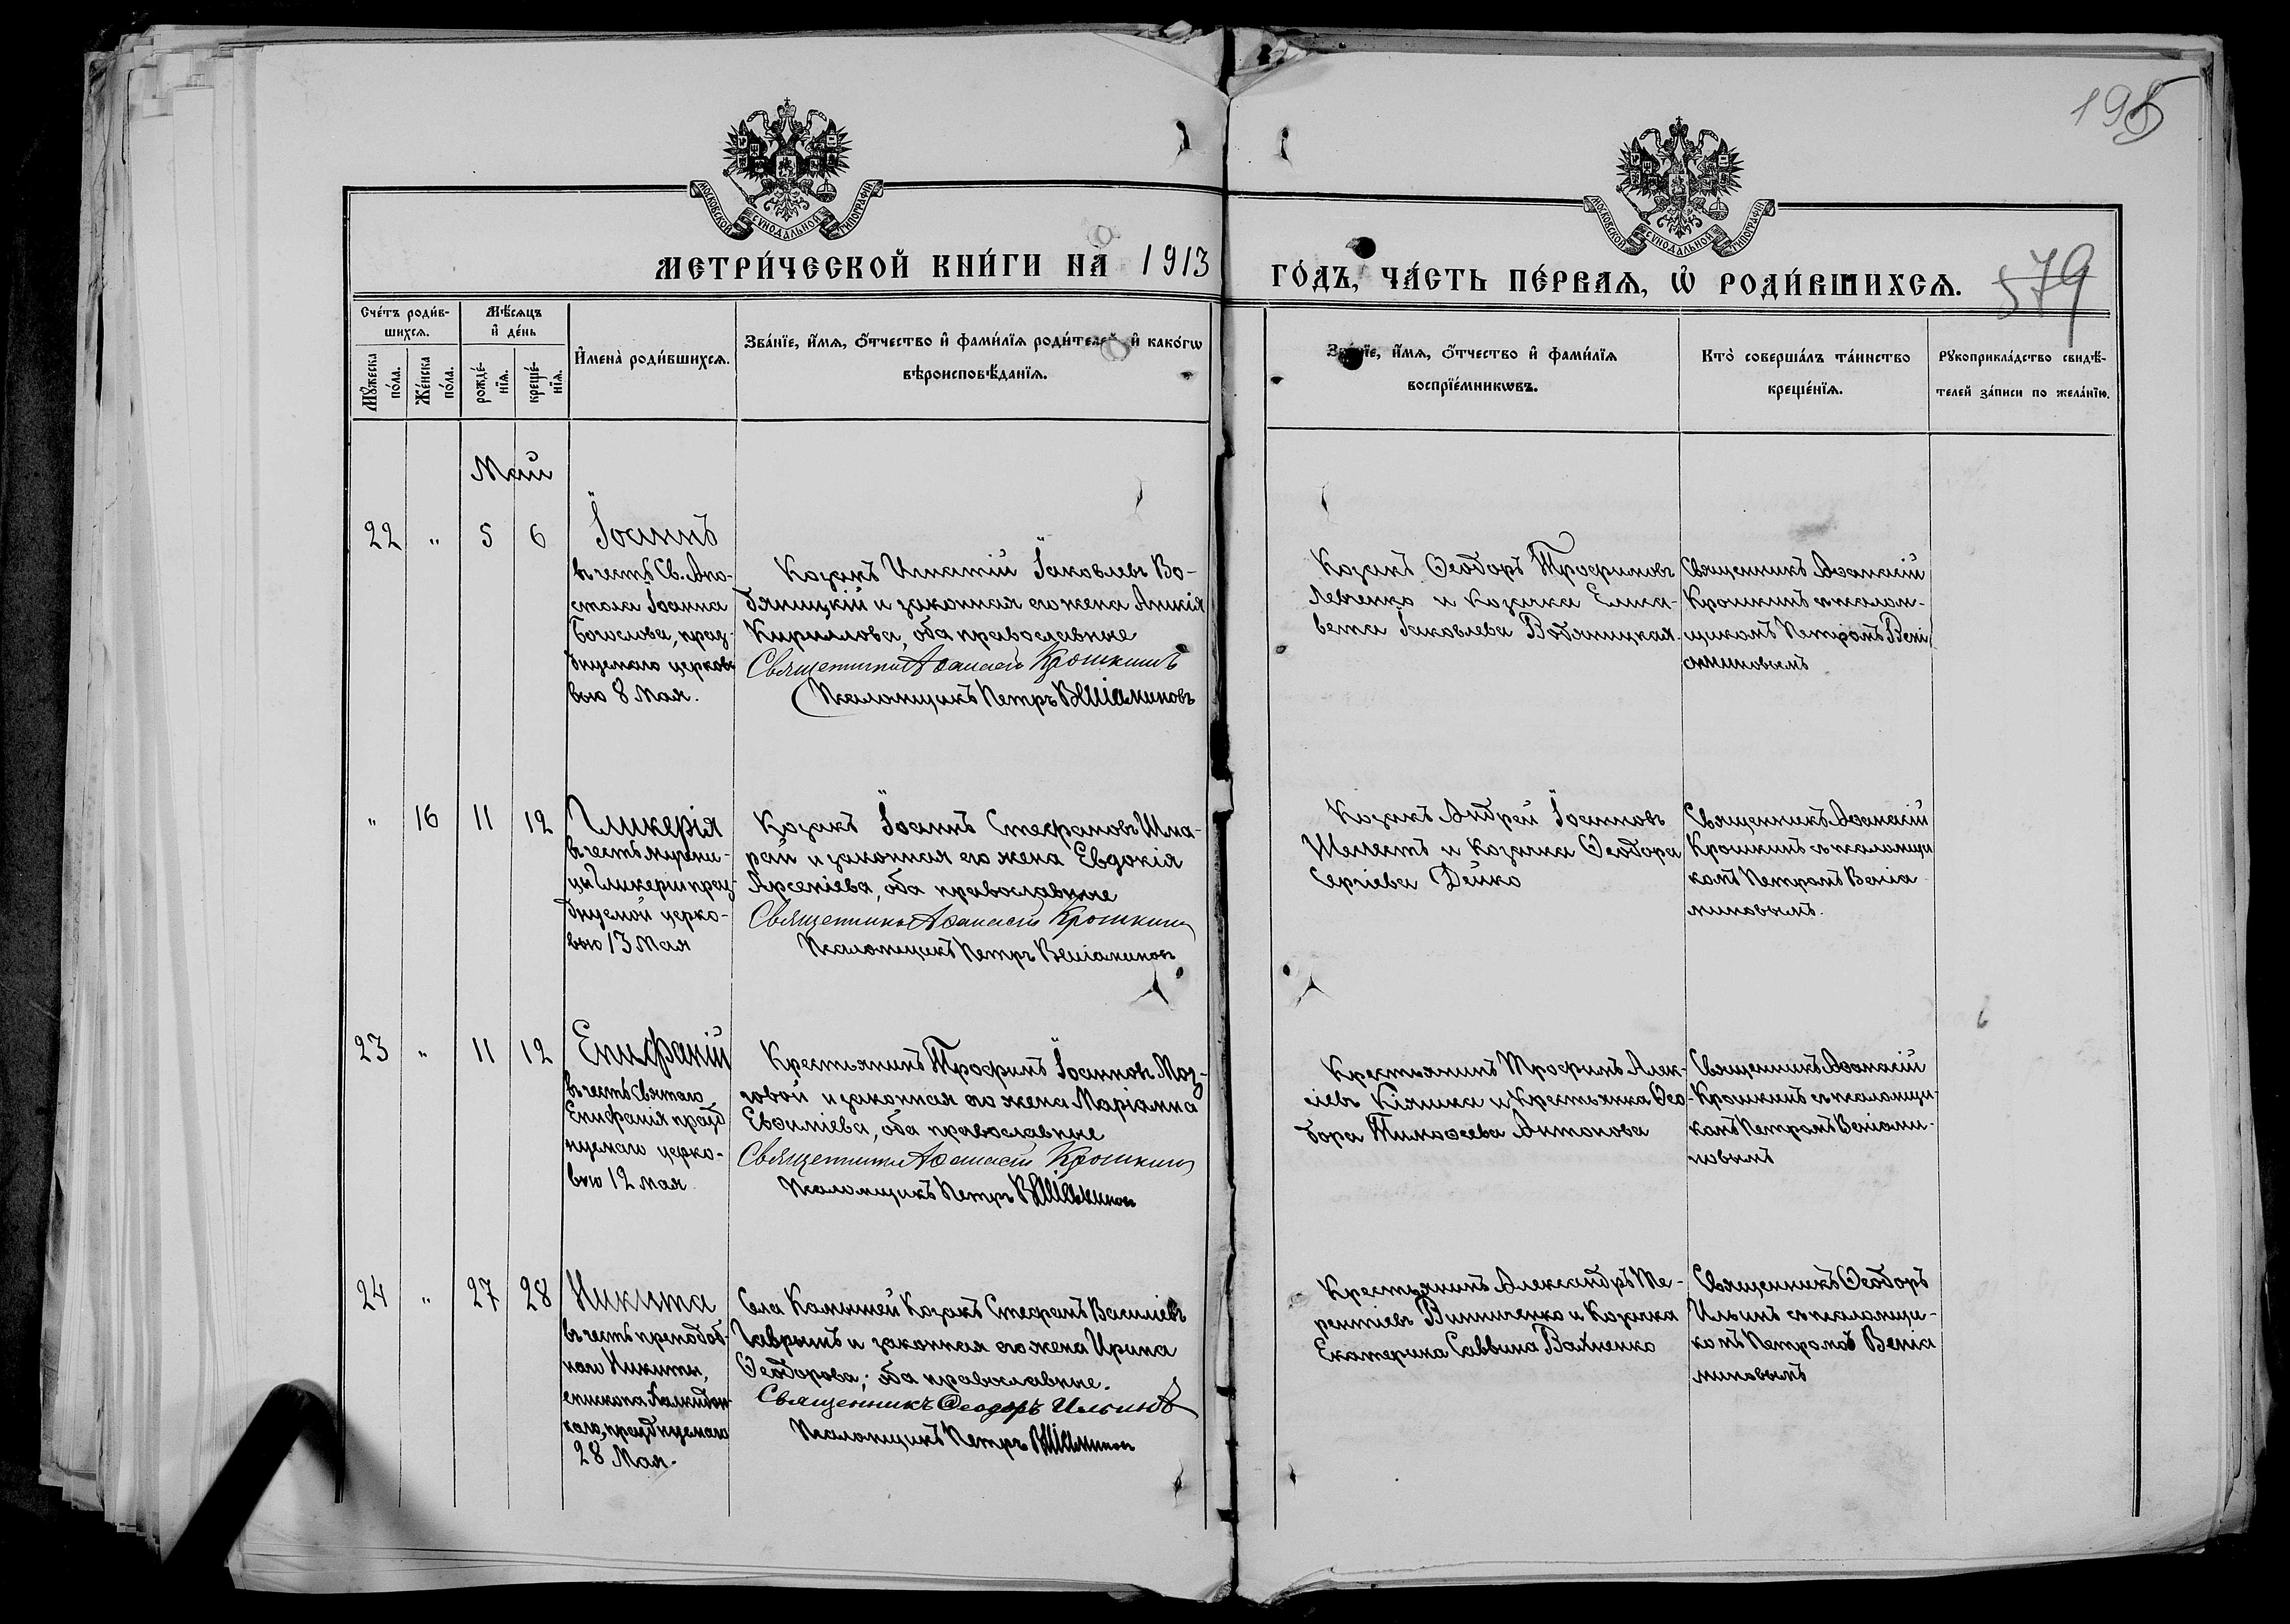 195
МОСКОВСКОЙ СѴНОДАЛЬНОЙ ТИПОГРАФІИ
МОСКОВСКОЙ СѴНОДАЛЬНОЙ ТИПОГРАФІИ
МЕТРИ́ЧЕСКОЙ КНИ́ГИ НА 1913
ГО́ДЪ, ЧА́СТЬ ПЕ́РВАѦ, Ѡ РОДИ́ВШИХСѦ.
579
Сче́тъ роди́в-
шихсѧ.
Мꙋ́жеска по́ла.
Же́нска по́ла.
Мѣ́сѧцъ
и҆ де́нь
рожде́-
нїѧ.
креще́-
нїѧ.
И҆мена̀ роди́вшихсѧ.
Зва́нїе, и҆́мѧ, ѻ҆́тчество и҆ фами́лїѧ роди́телей, и҆ како́гѡ
вѣроисповѣ́данїѧ.
Зва́нїе, и҆́мѧ, ѻ҆́тчество и҆ фами́лїѧ
воспрїе́мникѡвъ.
Кто̀ соверша́лъ та́инство
креще́нїѧ.
Рꙋкоприкла́дство свидѣ́-
телей за́писи по жела́нїю.
Май
22 " 5 6 Іоаннъ
въ честь Св. Апо-
стола Іоанна
Богослова, празд-
днуемаго церко-
вью 8 Мая.
Козакъ Игнатій Іаковлевъ Во-
дяницкій и законная его жена Аникія
Кириллова, оба православные
Священникъ Аѳанасій Крошкинъ
Псаломщикъ Петръ Веніаминовъ
Козакъ Ѳеодоръ Трофимовъ
Левченко и козачка Елиса-
вета Іаковлева Водяницкая.
Священникъ Аѳанасій
Крошкинъ съ псалом-
щикомъ Петромъ Вені
аминовымъ
" 16 11 12 Гликерія
въ честь мучени-
цы Гликеріи праз-
днуемой церко-
вью 13 Мая
Козакъ Іоаннъ Стефановъ Шпа-
рай и законная его жена Евдокія
Арсеніева, оба православные
Священникъ Аѳанасій Крошкинъ
Псаломщикъ Петръ Веніаминовъ
Козакъ Андрей Іоанновъ
Шелестъ и козачка Ѳеодора
Сергіева Дейко
Священникъ Аѳанасій
Крошкинъ съ псаломщи
комъ Петромъ Веніа
миновымъ.
23 " 11 12 Епифаній
въ честь Святаго
Епифанія празд
нуемаго церко-
вью 12 мая
Крестьянинъ Трофимъ Іоанновъ Моз-
говой и законная его жена Маріанна
Евѳиміева, оба православные
Священникъ Аѳанасій Крошкинъ
Псаломщикъ Петръ Веніаминовъ
Крестьянинъ Трофимъ Алек-
сіевъ Кіяшка и крестьянка Ѳео-
дора Тимоѳеева Антонова
Священникъ Аѳанасій
Крошкинъ съ псаломщи-
комъ Петромъ Веніами-
новымъ
24 " 27 28 Никита
въ честь преподоб-
наго Никиты,
епископа Халкидон
скаго, празднуемаго
28 Мая.
Села Камышей Козакъ Стефанъ Василіевъ
Гаврышъ и законная его жена Ирина
Ѳеодорова; оба православные.
Священникъ Ѳеодоръ Ильинъ
Псаломщикъ Петръ Веніаминовъ
Крестьянинъ Александръ Те-
рентіевъ Винниченко и козачка
Екатерина Саввина Вайненко
Священникъ Ѳеодоръ
Ильинъ съ псаломщи-
комъ Петромъ Веніа
миновымъ